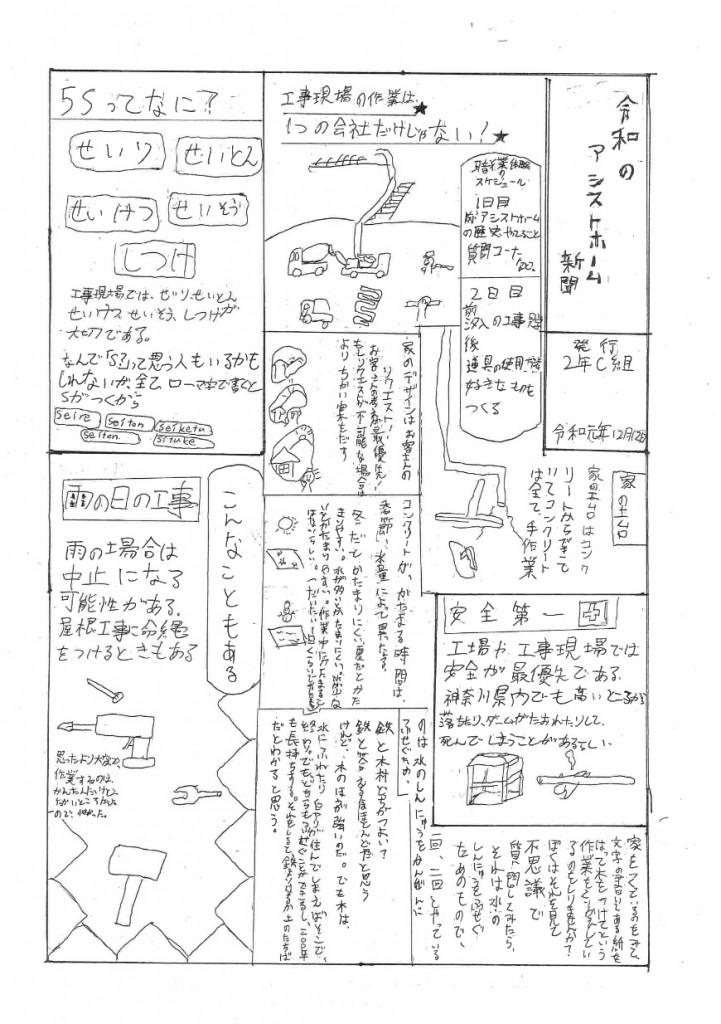 令和の
アシストホーム
新聞
発行
2年C組
令和元年12月12日
工事現場の作業は、
1つの会社だけじゃない!
職業体験の
スケジュール
1日目
アシストホーム
の歴史、やること
質問コーナー
など。
2日目
前
汐入の工事現場
後
道具の使用、
好きなものを
つくる
5Sってなに?
せいり
せいとん
せいけつ
せいそう
しつけ
工事現場では、せいり、せいとん
せいけつ せいそう、しつけが
大切である。
なんで「S?」って思う人もいるかも
しれないが、全て、ローマ字で書くと
Sがつくから
seire
seiton
seiketu
seiton
situke
家のデザインはお客さんの
リクエスト!
お客さんの考えが最優先!
もしリクエストが不可能な場合は
よりちかい案をだす
家の土台
家の土台はコンク
リートからできて
いてコンクリート
は全て、手作業
コンクリートが、かたまる時間は、
季節、水量によって異なる。
冬だとかたまりにくい夏だとかた
まりやすい。水が多いとかたまりにくい、
安全第一
工場や工事現場では
安全が最優先である。
神奈川県内でも高いところから
落ちたり、ゲームがたおれたりして、
死んでしまうことがあるらしい。
こんなこともある
雨の日の工事
雨の場合は
中止になる
可能性がある。
屋根工事に命綱
をつけるときもある
思ったより大変で、
作業するのは、
かんたんだけど、
たかいところだった
ので、怖かった。
家をつくっているのをみて、
文字の書いてある紙を
はって木をつけてという
作業をくりかえしてい
るのをしりませんか?
ぼくはそれを見て
不思議で
質問してみたら、
それは水の
しんにゅうをふせぐ
ためのもので、
一回、二回とやっている
のは水のしんにゅうをかんぜんに
ふせぐため。
鉄と木材どちらがつよい?
鉄と答える人がほとんどだと思う
けど、木のほうが強いのだ。でも木は、
水にふれたり白アリが住んでしまえばそこで、
終わり。でもどちらもふせぐことができるし、200年
も長持ちする。それをしると鉄よりはるか上のたちば
だとわかると思う。